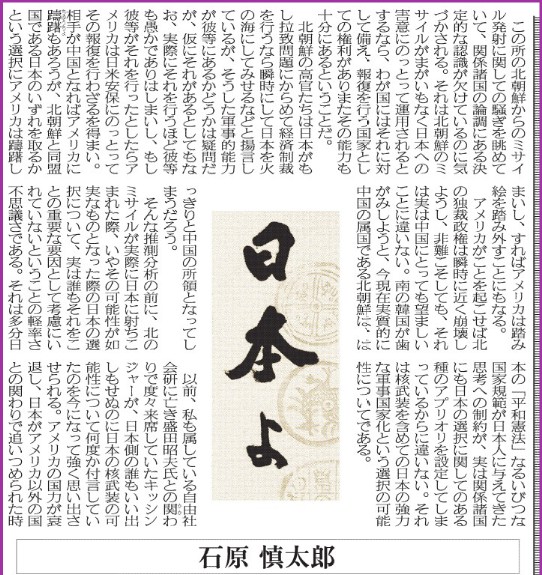 この所の北朝鮮からのミサイ
ル発射に関しての騒ぎを眺めて
いて、関係諸国の論調にある決
定的な認識が欠けているのに気
づかされる。それは北朝鮮のミ
サイルがまがいもなく日本への
害意にのっとって運用されると
するなら、わが国にはそれに対
して備え、報復を行う国家とし
ての権利がありまたその能力も
十分にあるということだ。
北朝鮮の高官たちは日本がも
し拉致問題にからめて経済制裁
を行うなら瞬時にして日本を火
の海にしてみせるなどと揚言し
ているが、そうした軍事的能力
が彼等にあるかどうかは疑問だ
が、仮にそれがあるとしてもな
お、実際にそれを行うほど彼等
も愚かでありはしまい。もし
彼等がそれを行ったとしたらア
メリカは日米安保にのっとって
その報復を行わざるを得まい。
相手が中国となればアメリカに
躊躇もあろうが、北朝鮮と同盟
国である日本のいずれを取るか
という選択にアメリカは躊躇し
まいし、すればアメリカは踏み
絵を踏み外すことにもなる。
アメリカがことを起こせば北
の独裁政権は瞬時に近く崩壊し
ようし、非難こそしても、それ
は実は中国にとっても望ましい
ことに違いない。南の韓国が歯
がみしようと、今現在実質的に
中国の属国である北朝鮮は、は
っきりと中国の所領となってし
まうだろう。
そんな推測分析の前に、北の
ミサイルが実際に日本に射ちこ
まれた際、いやその可能性が如
実なものとなった際の日本の選
択について、実は誰もそれをこ
との重要な要因として考慮にい
れていないということの軽率さ、
不思議さである。それは多分日
本の「平和憲法」なるいびつな
国家規範が日本人に与えてきた
思考への制約が、実は関係諸国
にも日本の選択に関してのある
種のアプリオリを設定してしま
っているからに違いない。それ
は核武装を含めての日本の強力
な軍事国家化という選択の可能
性についてである。
以前、私も属している自由社
会研にとき盛田昭夫氏との関わ
りで度々来席していたキッシン
ジャーが、日本側の誰もいい出
しもせぬのに日本の核武装の可
能性について何度か付言してい
たのを今になって強く思い出さ
せられる。アメリカの国力が衰
退し、日本がアメリカ以外の国
との関わりで追いつめられた時
日本よ
石原 慎太郎